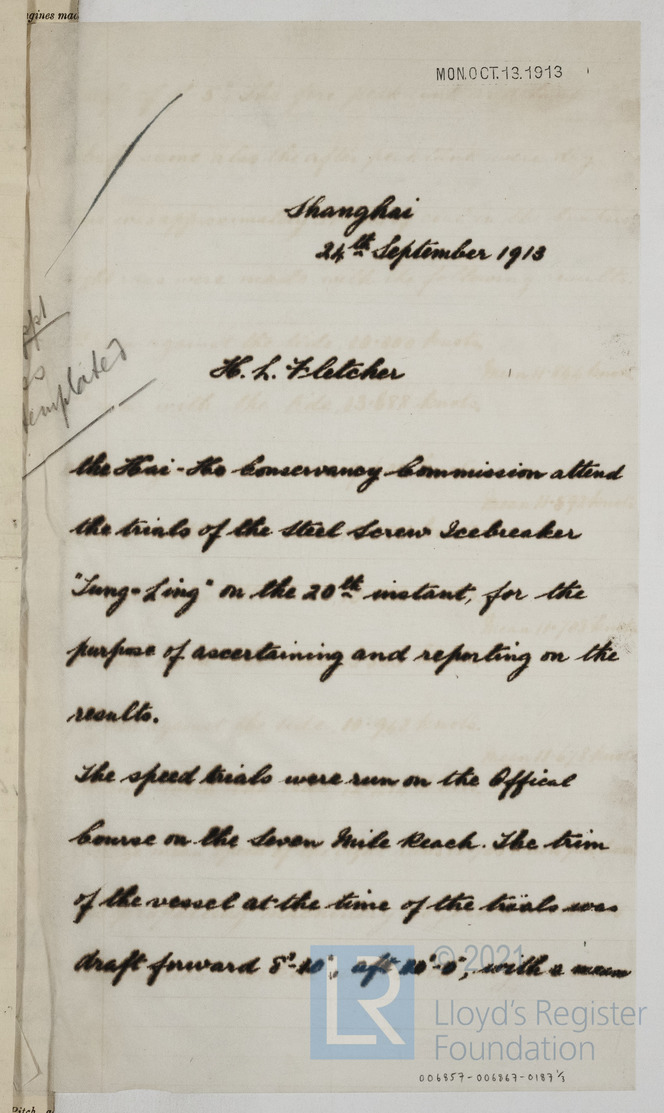 gines mad
MON.OCT.13.1913
Shanghai
24th September 1913
H. L. Fletcher
templated
the Hai-Ho Conservancy Commission attend
the trials of the Steel Screw Icebreaker
"Tung-Ling" on the 20th instant, for the
purpose of ascertaining and reporting on the
results.
The speed trials were run on the Offical
Course on the Seven Mile Reach. The trim
of the vessel at the time of the trials was
draft forward 8'-10", aft 10'-0", with a mean
© 2021
LR
Lloyd's Register
Foundation
006857-006867-0187 1/3
Pitch